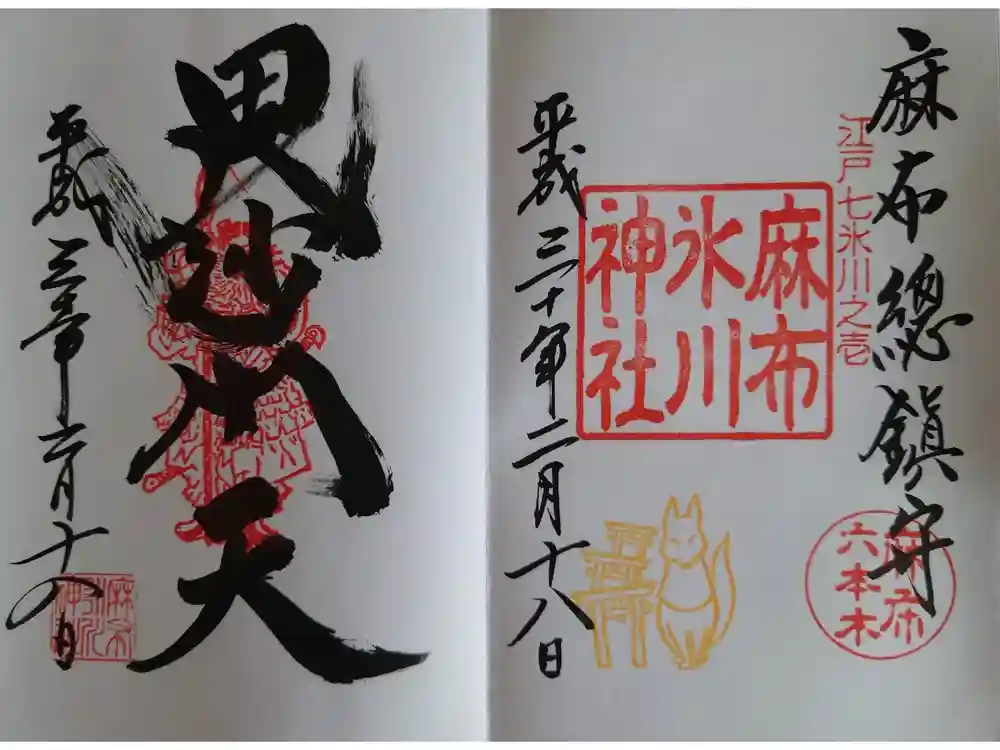 麻布總鎮守
江戸七氷川之壱
麻布
氷川
神社
麻布
六本木
平成三十年二月十八日
毘沙門天
平成三十年二月十八日